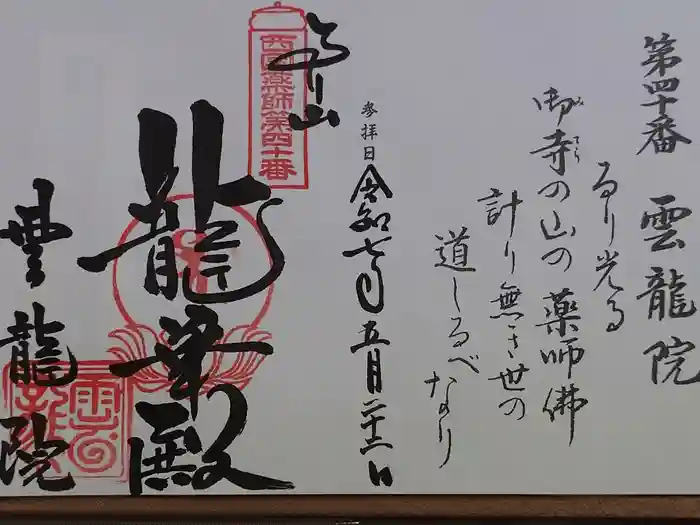 第四十番 雲龍院
るり光る
御寺の山の薬師佛
みてら
計り無き世の
道しるべなり
参拝日 令和七年五月二十二日
るり山
西国薬師第四十番
龍華殿
雲龍院